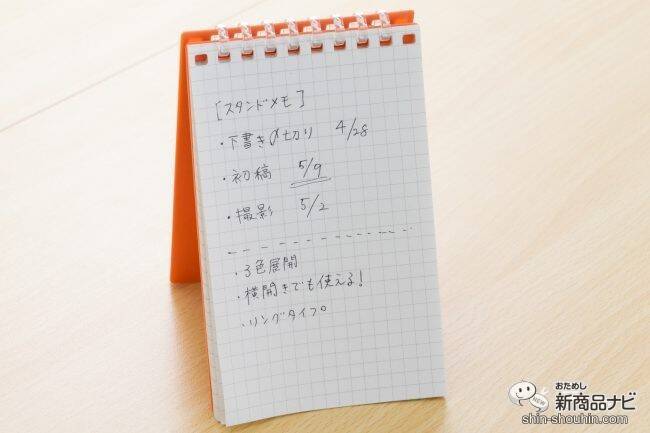 [スタンドメモ]
・下書き〆切り 4/28
・初稿 5/9
・撮影 5/2
・3色展開
・横開きでも使える!
・リングタイプ
おためし
新商品ナビ
NEW
shin-shouhin.com